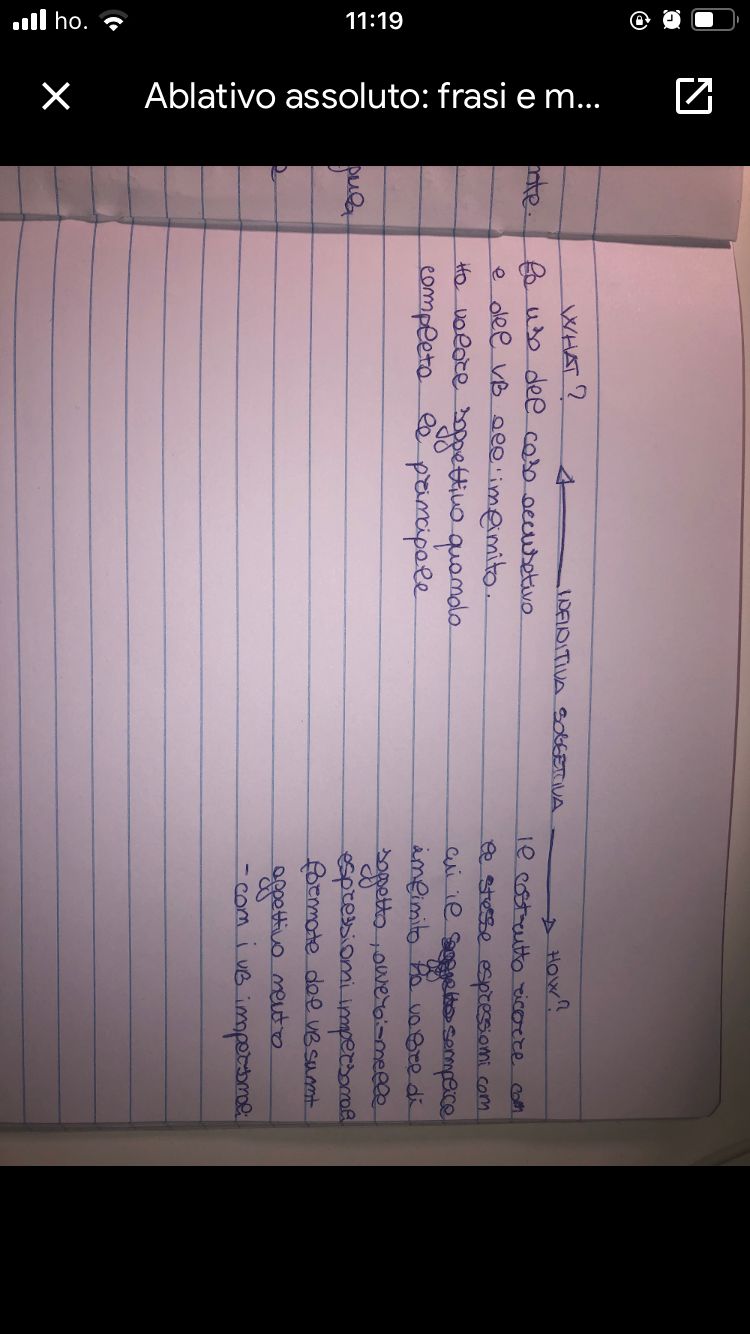 ho.
11:19
Ablativo assoluto: frasi e m...
WHAT? ← INFINITIVA SOGGETTIVA → HOW?
fa uso del caso accusativo
e del VB all'infinito.
Ha valore soggettivo quando
completa la principale
il costrutto ricorre con
le stesse espressioni con
cui il semplice
infinito ha valore di
soggetto, ovvero: - nelle
espressioni impersonali
formate dal VB sum+
aggettivo neutro
- con i VB impersonali